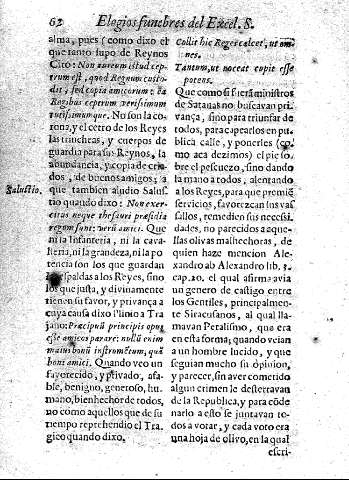 62 Elogios funebres del Excel. S.
alma, pues (como dixo el
que tanto supo de Reynos
Ciro: Non aureum istud cep-
trum est, quod Regnum custo-
dit, sed copia amicorum: ea
Regibus ceptrum verissimum
tutissimumque. No son la co-
rona, y el cetro de los Reyes
las trincheas, y cuerpos de
guardia para sus Reynos, la
abundancia, y copia de cria-
dos, de buenos amigos; a
que tambien aludio Salus-
tio quando dixo: Non exer-
citus neque thesauri præsidia
regom sunt: verũ amici. Que
ni la Infanteria, ni la cava-
lleria, ni la grandeza, ni la po-
tencia son los que guardan
espaldas a los Reyes, sino
los que justa, y divinamente
tienen su favor, y privança a
cuya causa dixo Plinio a Tra
jano: Præcipuũ principis opus
esse amicos parare: nullũ enim
maius boni instrumetum, quã
boni amici. Quando veo un
favorecido, y privado, afa-
ble, benigno, generoso, hu-
mano, bienhechor de todos,
no como aquellos que de su
tiempo reprehendio el Tra-
gico quando dixo,
Salustio.
Collit hic Reges calcet, ut om-
nes.
Tantum, ut noceat cupit esse
potens.
Que como si fuera ministros
de Satanas no buscavan pri-
vança, sino para triunfar de
todos, para caparlos en pu-
blica calle, y ponerles (co-
mo aca dezimos) el pie so-
bre el pescueço, sino dando
la mano a todos, alentando
a los Reyes, para que premie
servicios, favorezcan sus vas
sallos, remedien sus necessi-
dades, no parecidos a aque-
llas olivas malhechoras, de
quien haze mencion Ale-
xandro ab Alexandro lib. 5.
cap. 20. el qual afirmavia
un genero de castigo entre
los Gentiles, principalmen-
te Siracusanos, al qual lla-
mavan Petalismo, que era
en esta forma; quando veian
a un hombre lucido, y que
seguian mucho su opinion,
y parecer, sin aver cometido
algun crimen le desterravan
de la Republica, y para cõde
narlo a esto se juntavan to-
dos a votar, y cada voto era
una hoja de olivo, en la qual
escri-